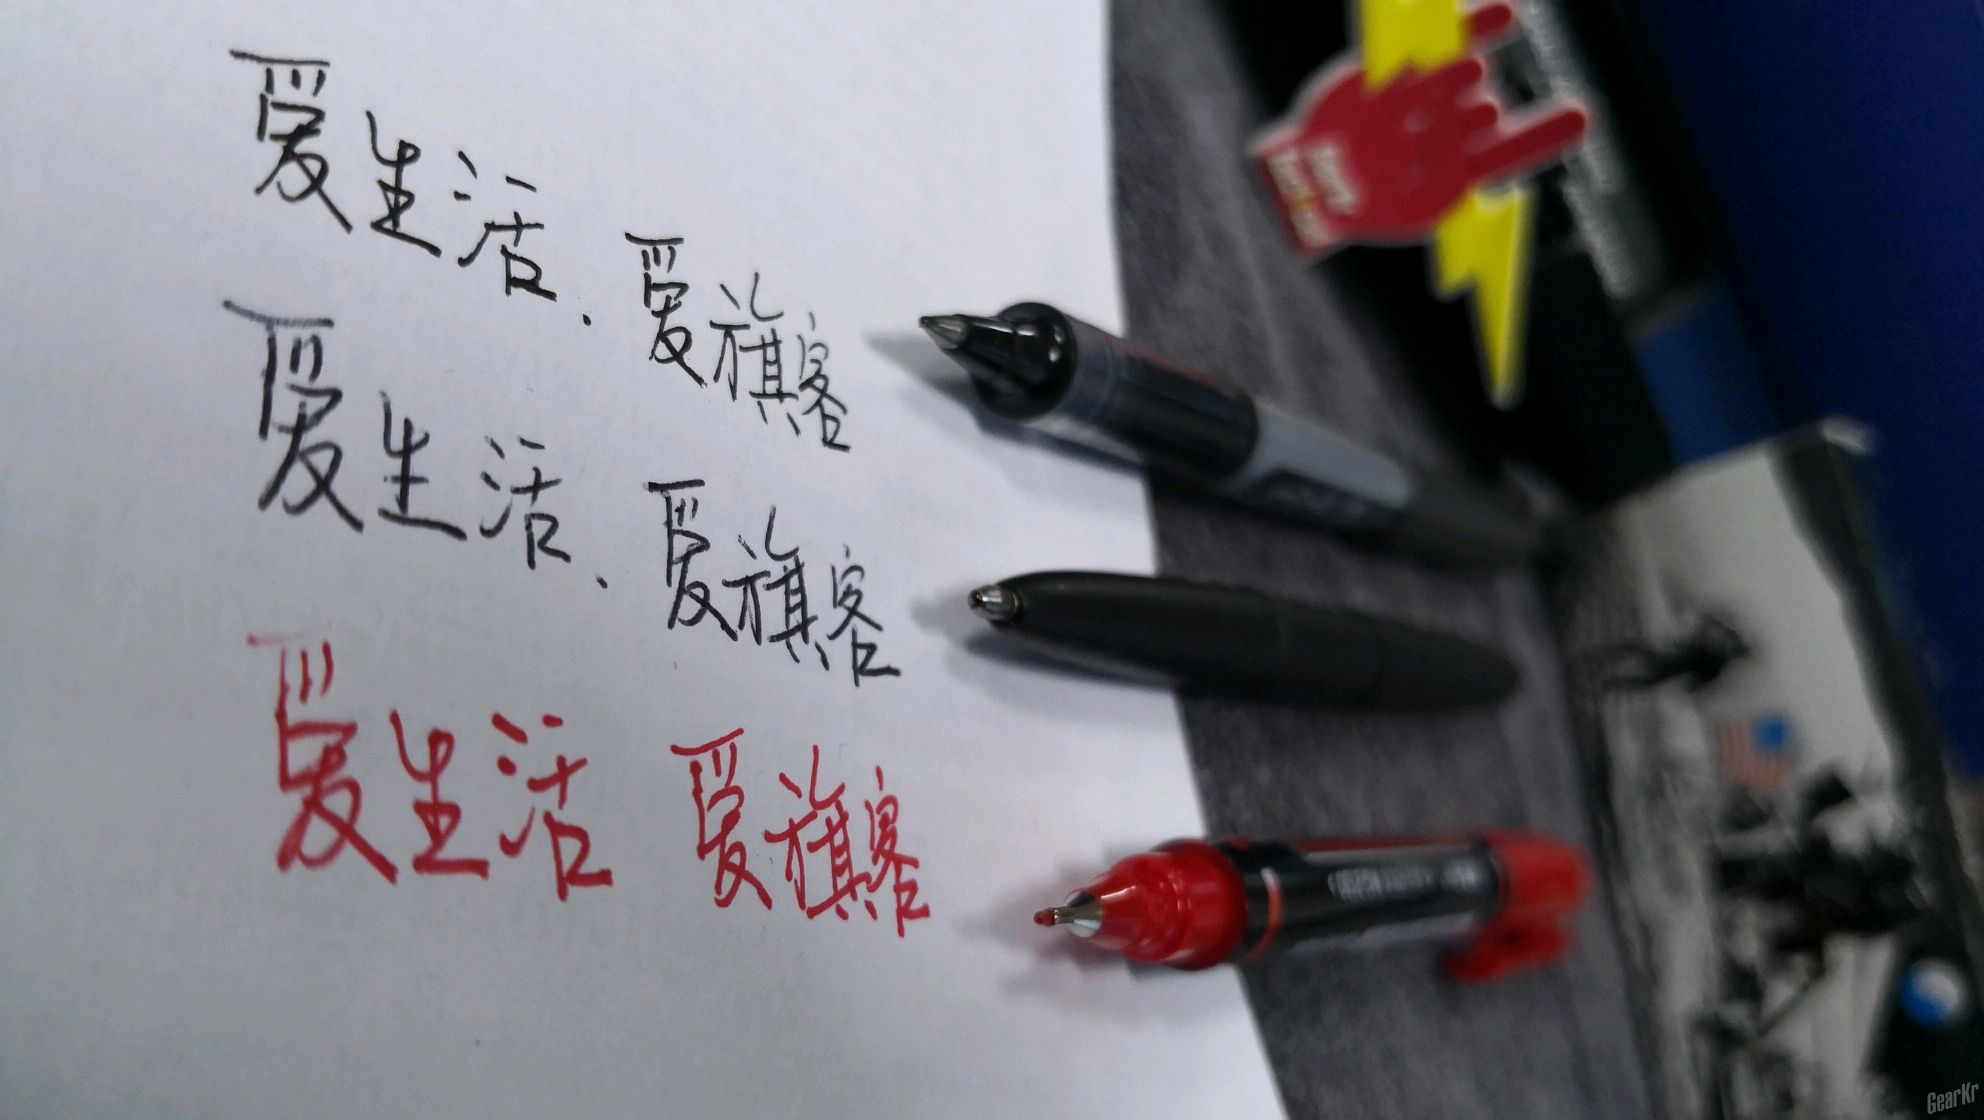 爱生活.爱旗客
爱生活.爱旗客
爱生活 爱旗客
GearKr